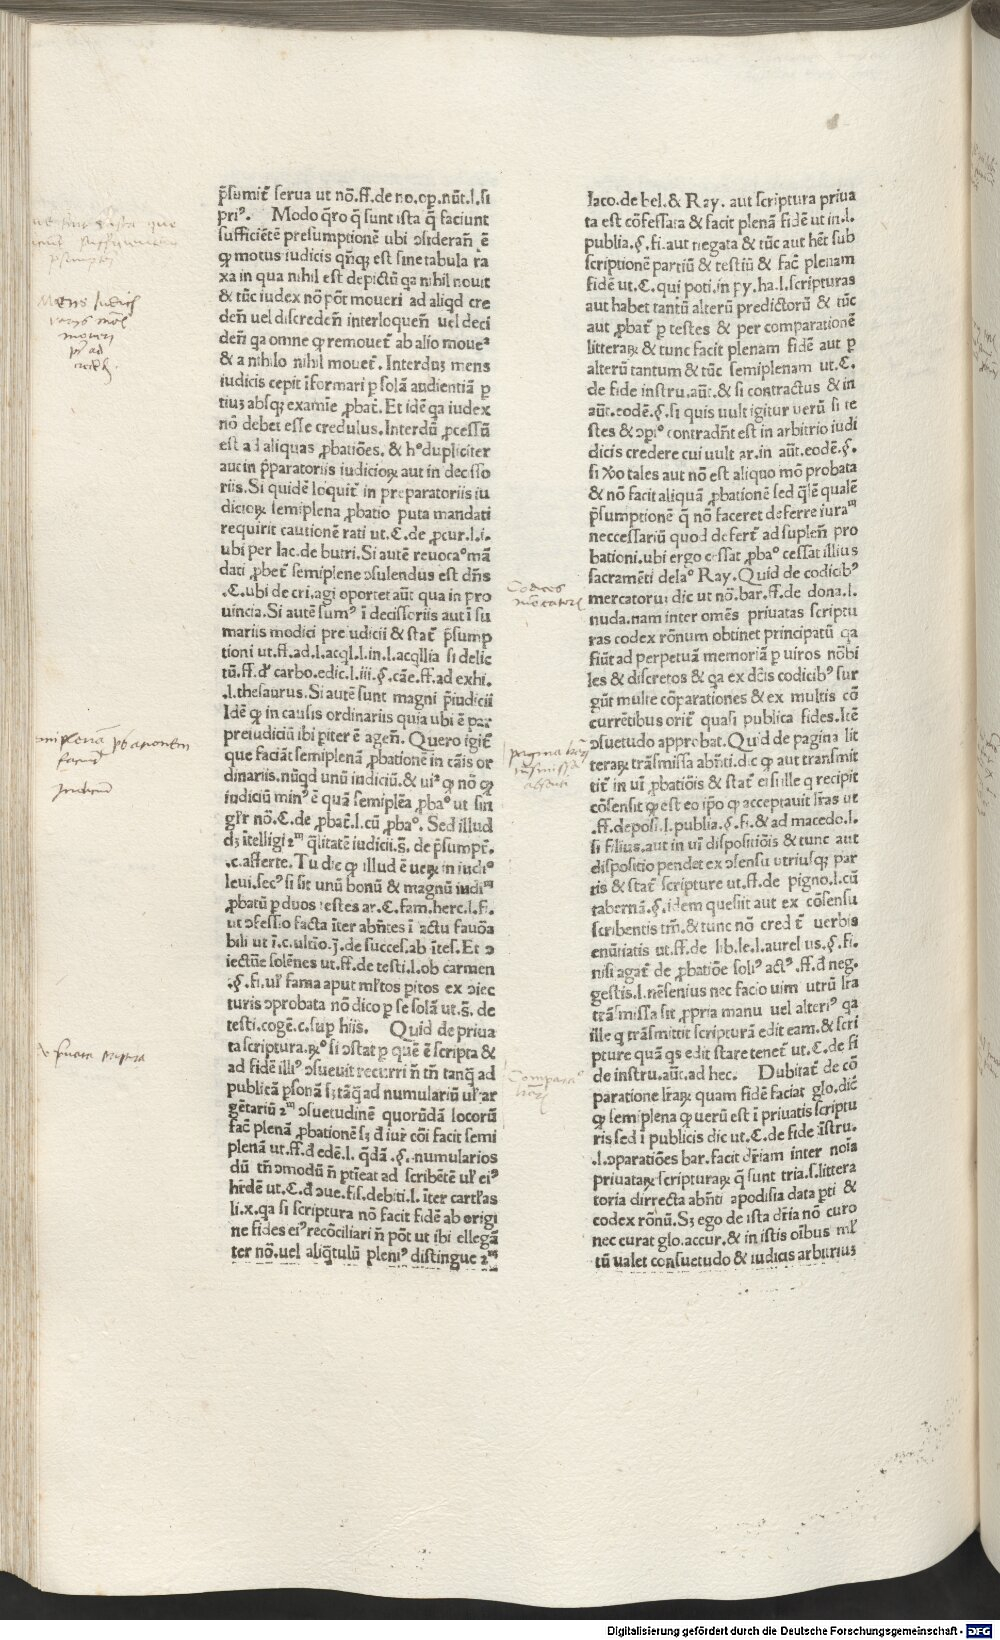 p̄sumit̄ serua ut nō.ff.de no.op̱.nūt.l.si
priꝰ. Modo q̄ro q̄ sunt ista q̄ faciunt
sufficiētē presumptionē ubi ↄsideran̄ ē
ꝙ motus iudicis qn̄qꝫ est sine tabula ra
xa in qua nihil est depictū qa nihil nouit
& tūc iudex nō pōt moueri ad aliqd cre
den̄ uel discreden̄ interloquen̄ uel deci
den̄ qa omne ꝙ remouet̄ ab alio moueᷣ
& a nihilo nihil mouet̄. Interduꝫ mens
iudicis cepit īformari ꝑ solā audientiā ꝑ
tiuꝫ absqꝫ examīe ꝓbat̄. Et idē qa iudex
nō debet esse credulus. Interdū ꝓcessū
est ad aliquas ꝓbatiōes. & hº dupliciter
aut in p̄paratoriis iudicioꝝ aut in decisso
riis. Si quidē loquit̄ in preparatoriis iu
dicioꝝ semiplena ꝓbatio puta mandati
requirit cautionē rati ut.C.de ꝓcur.l.i.
ubi per Iac.de butri. Si autē reuocaº mā
dati ꝓbet̄ semiplene ↄsulendus est dn̄s
.C.ubi de cri.agi oportet aūt qua in pro
uincia. Si autē sumꝰ ī decissoriis aut ī su
mariis modici preiudicii & stat̄ p̄sump
tioni ut.ff.ad.l.acql.l.in.l.acqllia si delic
tū.ff.đ carbo.edic.l.iii.§.cāe.ff.ad exhi.
.l.thesaurus. Si autē sunt magni p̄iudicii
Idē ꝙ in causis ordinariis quia ubi ē par
preiudiciū ibi ꝑiter ē agen̄. Quero igit̄
que faciāt semiplenā ꝓbationē in cāis or
dinariis.nūqd unū indiciū.& uiᷣ ꝙ nō ꝙ
indiciū minꝰ ē quā semiplēa ꝓbaº ut sin
gl̄r nō.C.de ꝓbat̄.l.cū ꝓbaº. Sed illud
dꝫ ītelligi 2ᵐ q̄litatē iudicii.s̄. de p̄sumpt̄.
.c.afferte. Tu dic ꝙ illud ē ueꝝ in iudiº
leui.secꝰ si sit unū bonū & magnū iudiᵐ
ꝓbatū ꝑ duos testes ar.C.fam.herc.l.fi.
ut ↄfessio facta īter abn̄tes ī actu fauōa
bili ut ī.c.ultīo.j.de succes.ab ītes. Et ↄ
iectūe solēnes ut.ff.de testi.l.ob carmen
.§.fi.ul̄ fama aput ml̄tos ꝑitos ex ↄiec
turis ↄprobata nō dico ꝑ se solā ut.s̄. de
testi.cogē.c.suꝑ hiis. Quid de priua
ta scriptura.ꝶº si ↄstat ꝑ quē ē scripta &
ad fidē illiꝰ ↄsueuit recurri n̄ tn̄ tanq̄ ad
publicā ꝑsonā sꝫ tāq̄ ad numulariū ul̄ ar
gētariū 2ᵐ ↄsuetudinē quorūdā locorū
fac̄ plenā ꝓbationē sꝫ đ iur̄ cōi facit semi
plenā ut.ff.đ edē.l. q̄dā.§.numularios
dū tn̄ ↄmodū n̄ ptīeat ad scribētē ul̄ eiꝰ
hr̄dē ut.C.đ ↄue.fis.debiti.l. īter cartl̄as
li.x.qa si scriptura nō facit fidē ab origi
ne fides eiꝰ recōciliari n̄ pōt ut ibi ellegā
ter nō.uel aliq̄tulū pleniꝰ distingue 2ᵐ
Iaco.de bel.& Ray. aut scriptura priua
ta est cōfessata & facit plenā fidē ut in.l.
publia.§.fi.aut negata & tūc aut hēt sub
scriptionē partiū & testiū & fac̄ plenam
fidē ut.C.qui poti.in py.ha.l.scripturas
aut habet tantū alterū predictorū & tūc
aut ꝓbat̄ ꝑ testes & per comparationē
litteraꝝ & tunc facit plenam fidē aut ꝑ
alterū tantum & tūc semiplenam ut.C.
de fide instru.aūt.& si contractus & in
aūt.eodē.§.si quis uult igitur uerū si te
stes & ↄꝑiº contradn̄t est in arbitrio iudi
dicis credere cui uult ar.in aūt.eodē.§.
si ꝟo tales aut nō est aliquo mō probata
& nō facit aliquā ꝓbationē sed q̄lē qualē
p̄sumptionē q̄ nō faceret deferre iuraᵐ
neccessariū quod defert̄ ad suplen̄ pro
bationi.ubi ergo cessat ꝓbaº cessat illius
sacramēti delaº Ray. Quid de codicibꝰ
mercatoruꝫ dic ut nō.bar.ff.de dona.l.
nuda.nam inter omēs priuatas scriptu
ras codex rōnum obtinet principatū qa
fiūt ad perpetuā memoriā ꝑ uiros nōbi
les & discretos & qa ex dc̄is codicibꝰ sur
gūt multe cōparationes & ex multis cō
currētibus orit̄ quasi publica fides. Itē
ↄsuetudo approbat. Quid de pagina lit
teraꝝ trāsmissa abn̄ti.dic ꝙ aut transmit
tit̄ in uī ꝓbatiōis & stat̄ ei si ille q recipit
cōsensit ꝙ est eo ip̄o ꝙ acceptauit lr̄as ut
.ff.deposi.l.publia.§.fi.& ad macedo.l.
si filius.aut in uī dispositiōis & tunc aut
dispositio pendet ex ↄsensu utriusqꝫ par
tis & stat̄ scripture ut.ff.de pigno.l.cū
tabernā.§.idem quesiit aut ex cōsensu
scribentis tm̄.& tunc nō cred t̄ uerbis
enūtiatis ut.ff.de lib.le.l.aurel us.§.fi.
nisi agat̄ de ꝓbatiōe soliꝰ actꝰ.ff.đ neg.
gestis.l.nēsenius nec facio uim utrū lr̄a
trāsmissa sit ꝓpria manu uel alteriꝰ qa
ille q trāsmittit scripturā edit eam.& scri
pture quā qs edit stare tenet̄ ut.C.de fi
de instru.aūt.ad hec. Dubitat̄ de cō
paratione lr̄aꝝ quam fidē faciat glo.dic̄
ꝙ semiplena ꝙ uerū est ī priuatis scriptu
ris sed ī publicis dic ut.C.de fide īstru.
.l.ↄparatiōes bar.facit dr̄iam inter noīa
priuataꝝ scripturaꝝ q̄ sunt tria.s.littera
toria dirrecta abn̄ti apodisia data ꝑti &
codex rōnū. Sꝫ ego de ista dr̄ia nō curo
nec curat glo.accur.& in istis oībus ml̄
tū ualet consuetudo & iudicis arbitriuꝫ
Mens Iudicis
moueri
ad
Codices
mercatorum
pagina
absenti
Digitalisierung gefördert durch die Deutsche Forschungsgemeinschaft - DFG